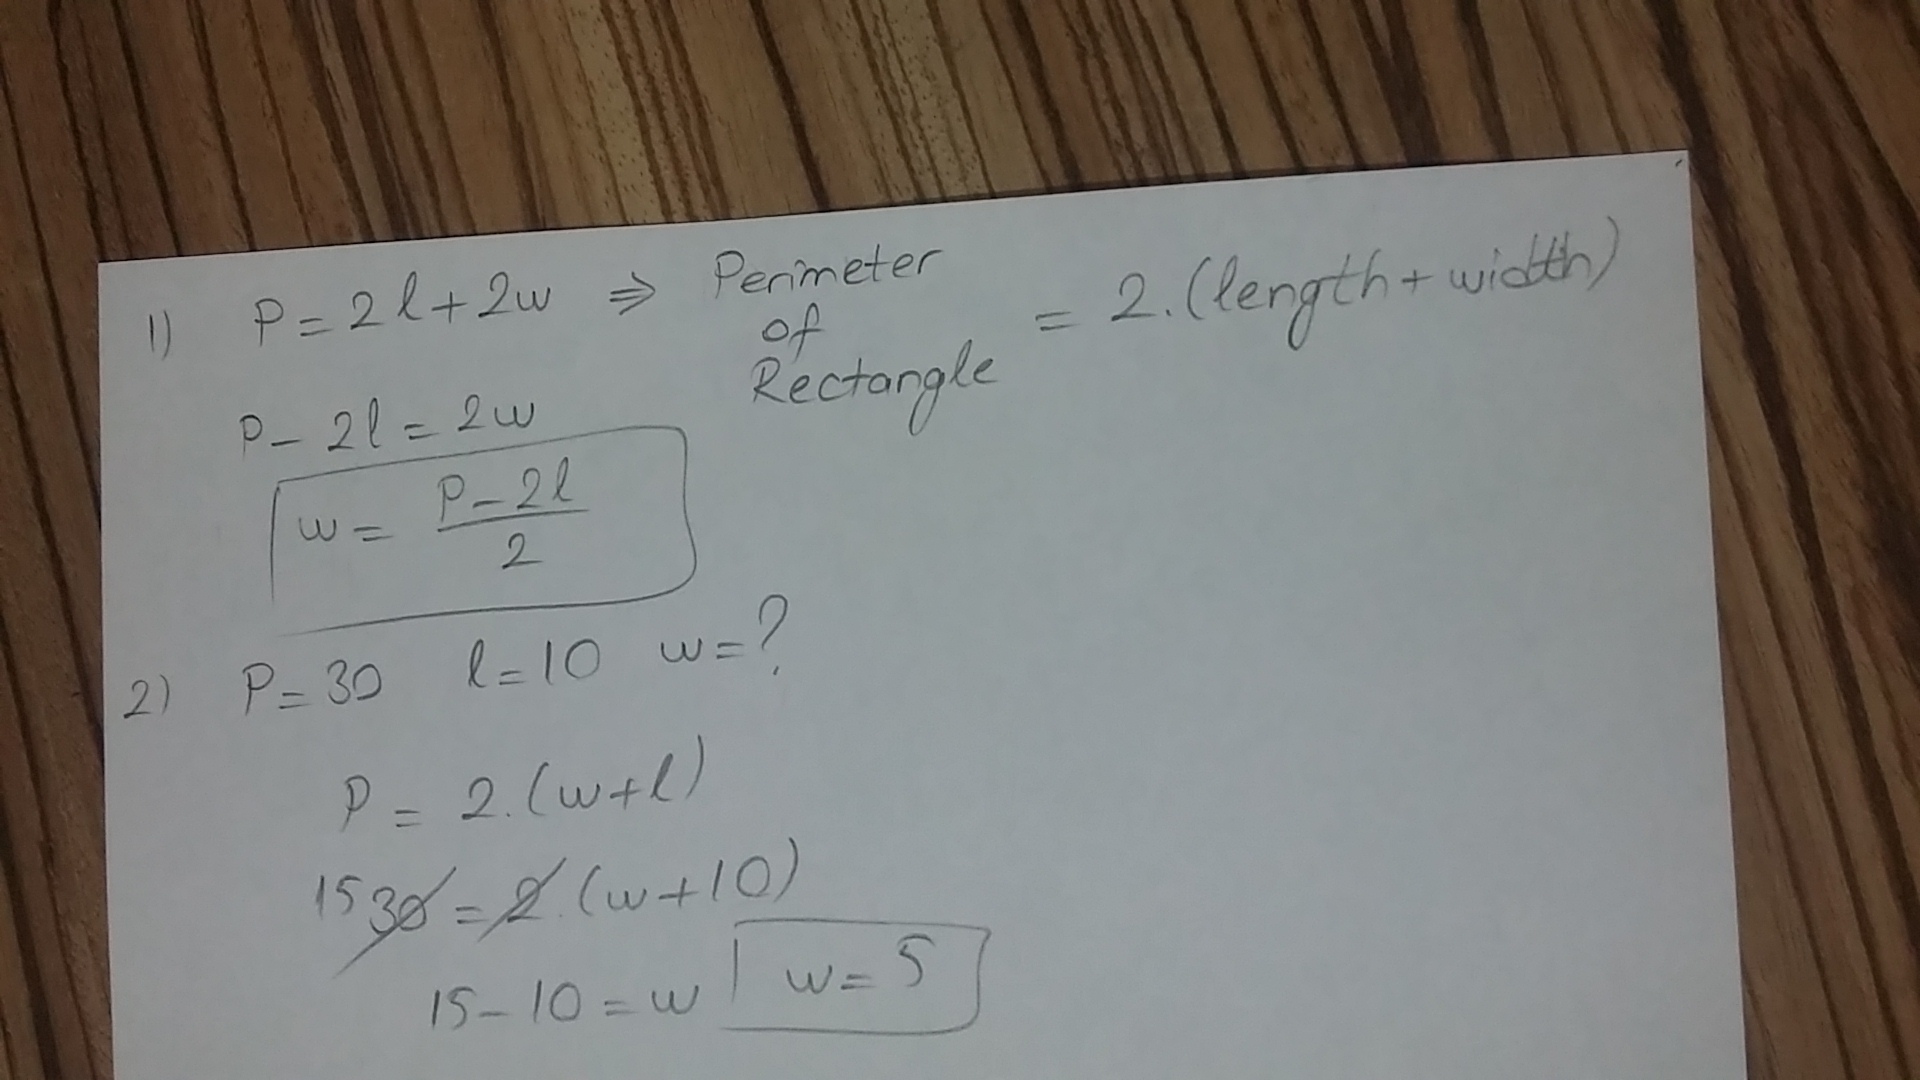 1) P = 2l + 2w ⇒ Perimeter of Rectangle = 2.(length + width)
P - 2l = 2w
w = (P - 2l) / 2
2) P = 30 l = 10 w = ?
P = 2.(w + l)
15 30 = 2.(w + 10)
15 - 10 = w w = 5